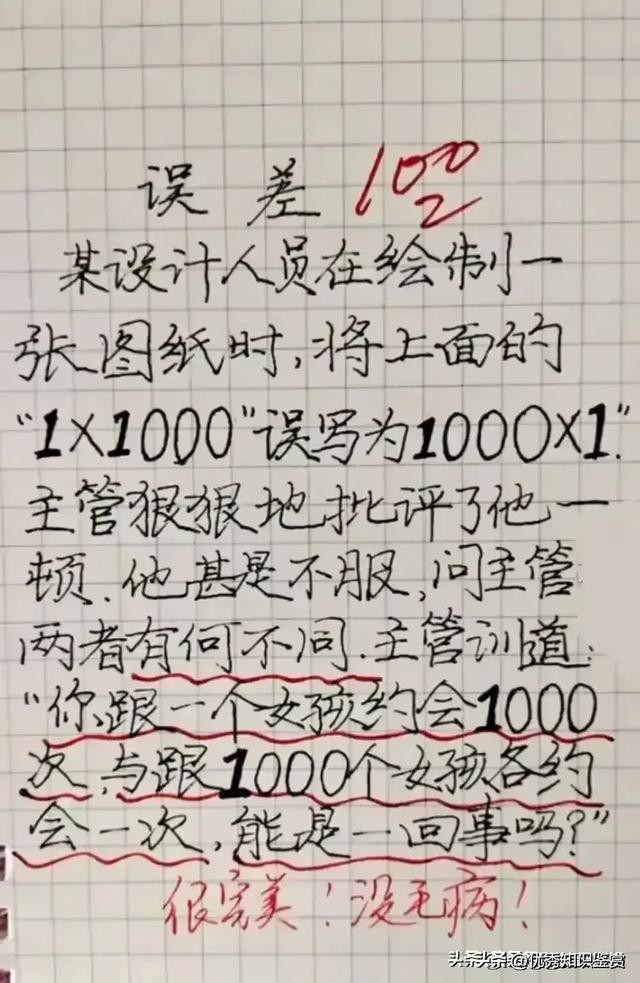 误差 100
某设计人员在绘制一
张图纸时,将上面的
“1×1000”误写为1000×1”.
主管狠狠地批评了他一
顿.他甚是不服,问主管
两者有何不同.主管训道:
“你跟一个女孩约会1000
次,与跟1000个女孩各约
会一次,能是一回事吗?”
很完美!没毛病!
头条@优秀知识鉴赏